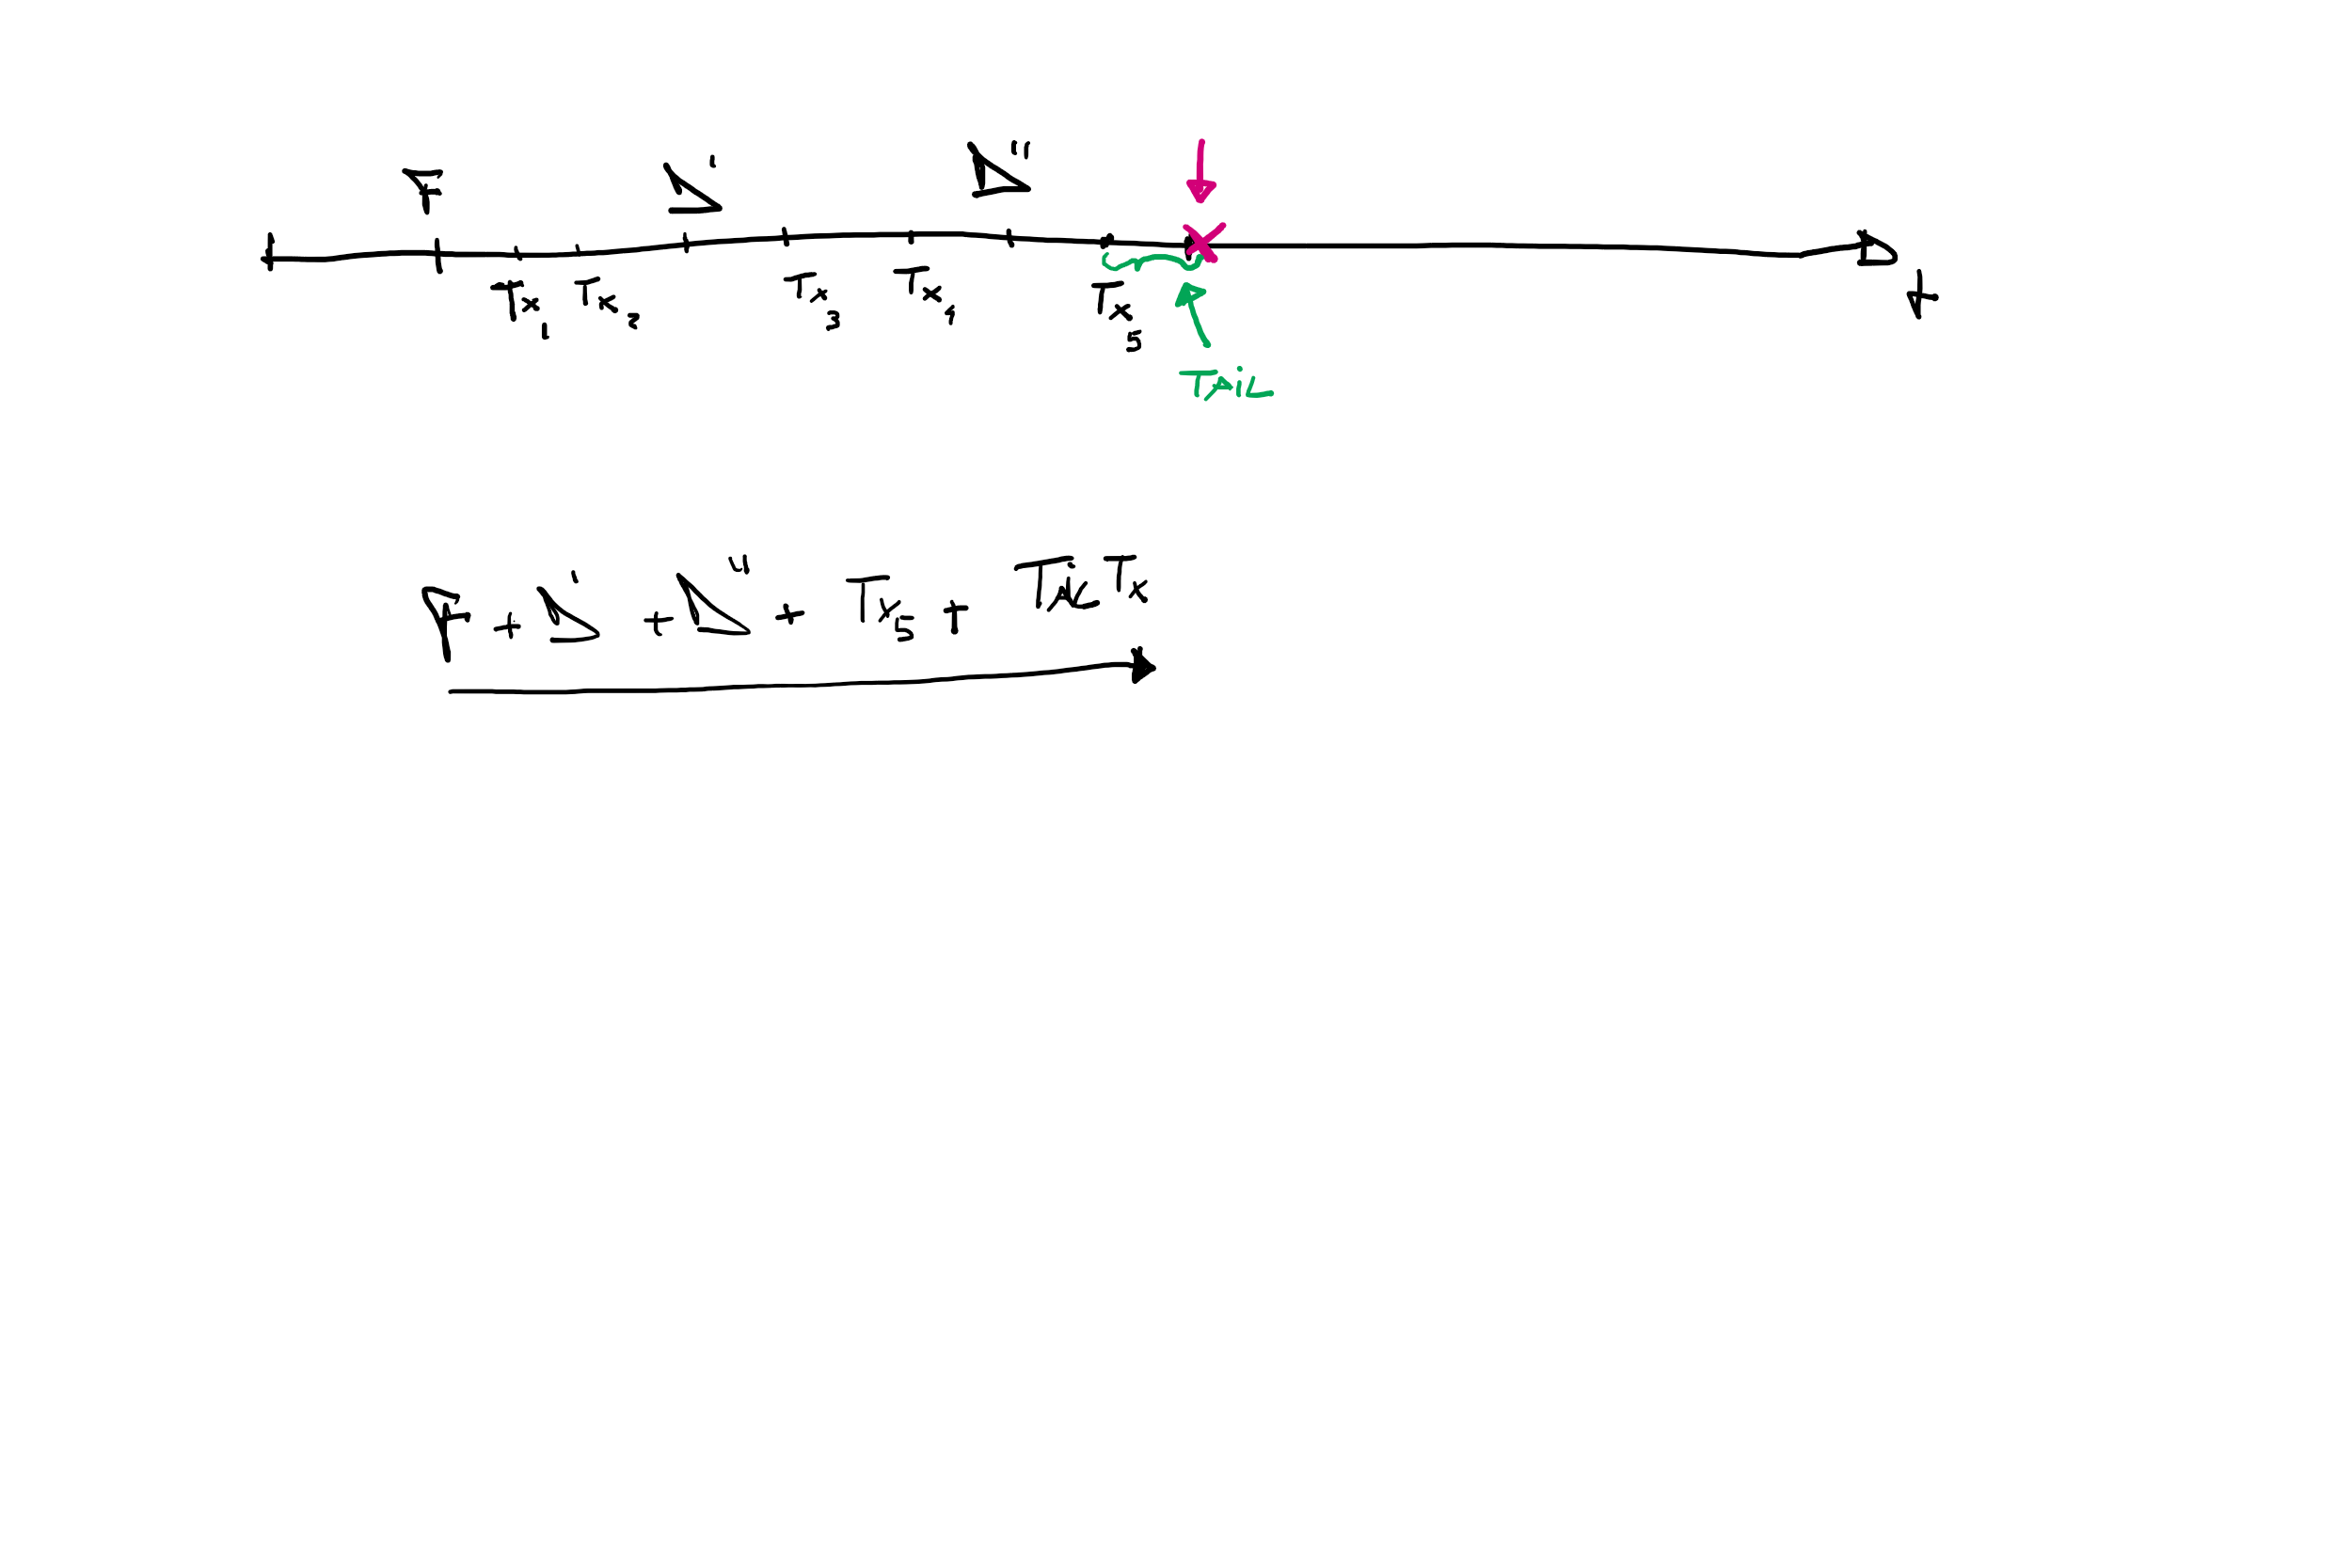 F Δ' Δ''
Tx1 Tx2 Tx3 Tx4 Tx5 t
TAiL
F + Δ' + Δ'' + Tx5 + TAiL Tx